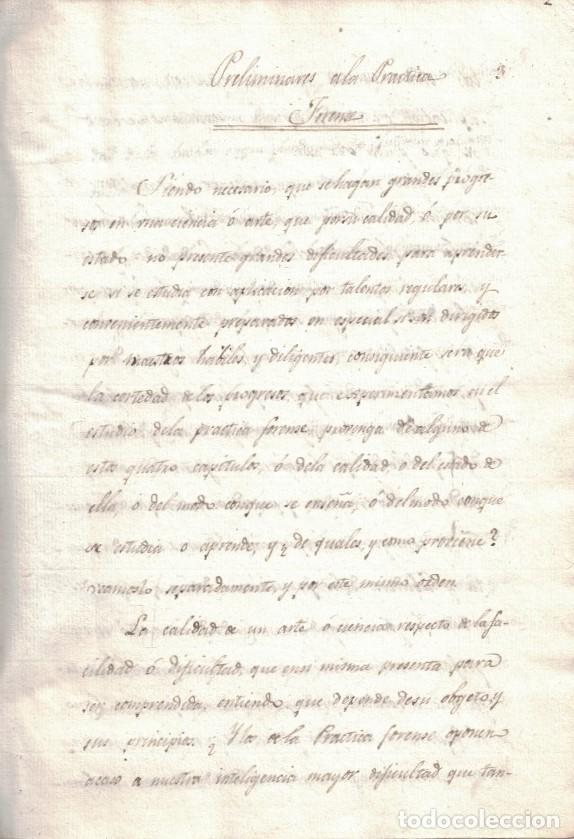 2
3
Preliminares ala Practica
Forense
Siendo necesario, que se hagan grandes progre-
sos en una ciencia ó arte, que por su calidad, ó por su
estado no presente grandes dificultades para aprender-
se si se estudia con aplicacion por talentos regulares, y
convenientemente preparados en especial si son dirigidos
por maestros habiles, y diligentes, consiguiente sera que
la cortedad de los progresos, que experimentamos en el
estudio dela practica forense provenga de alguno de
estos quatro capitulos, ó dela calidad ó del estado de
ella, ó del modo conque se enseña, ó del modo conque
se estudia o aprende, y ¿ de quales, y como proviene?
veamoslo separadamente, y por este mismo orden.
La calidad de un arte ó ciencia respecto de la fa-
cilidad ó dificultad, que en si misma presenta para
ser comprendida, entiendo, que depende desu objeto, y
sus principios. ¿ Y los de la Practica forense oponen
acaso a nuestra inteligencia mayor dificultad que tan-
todocoleccion.net